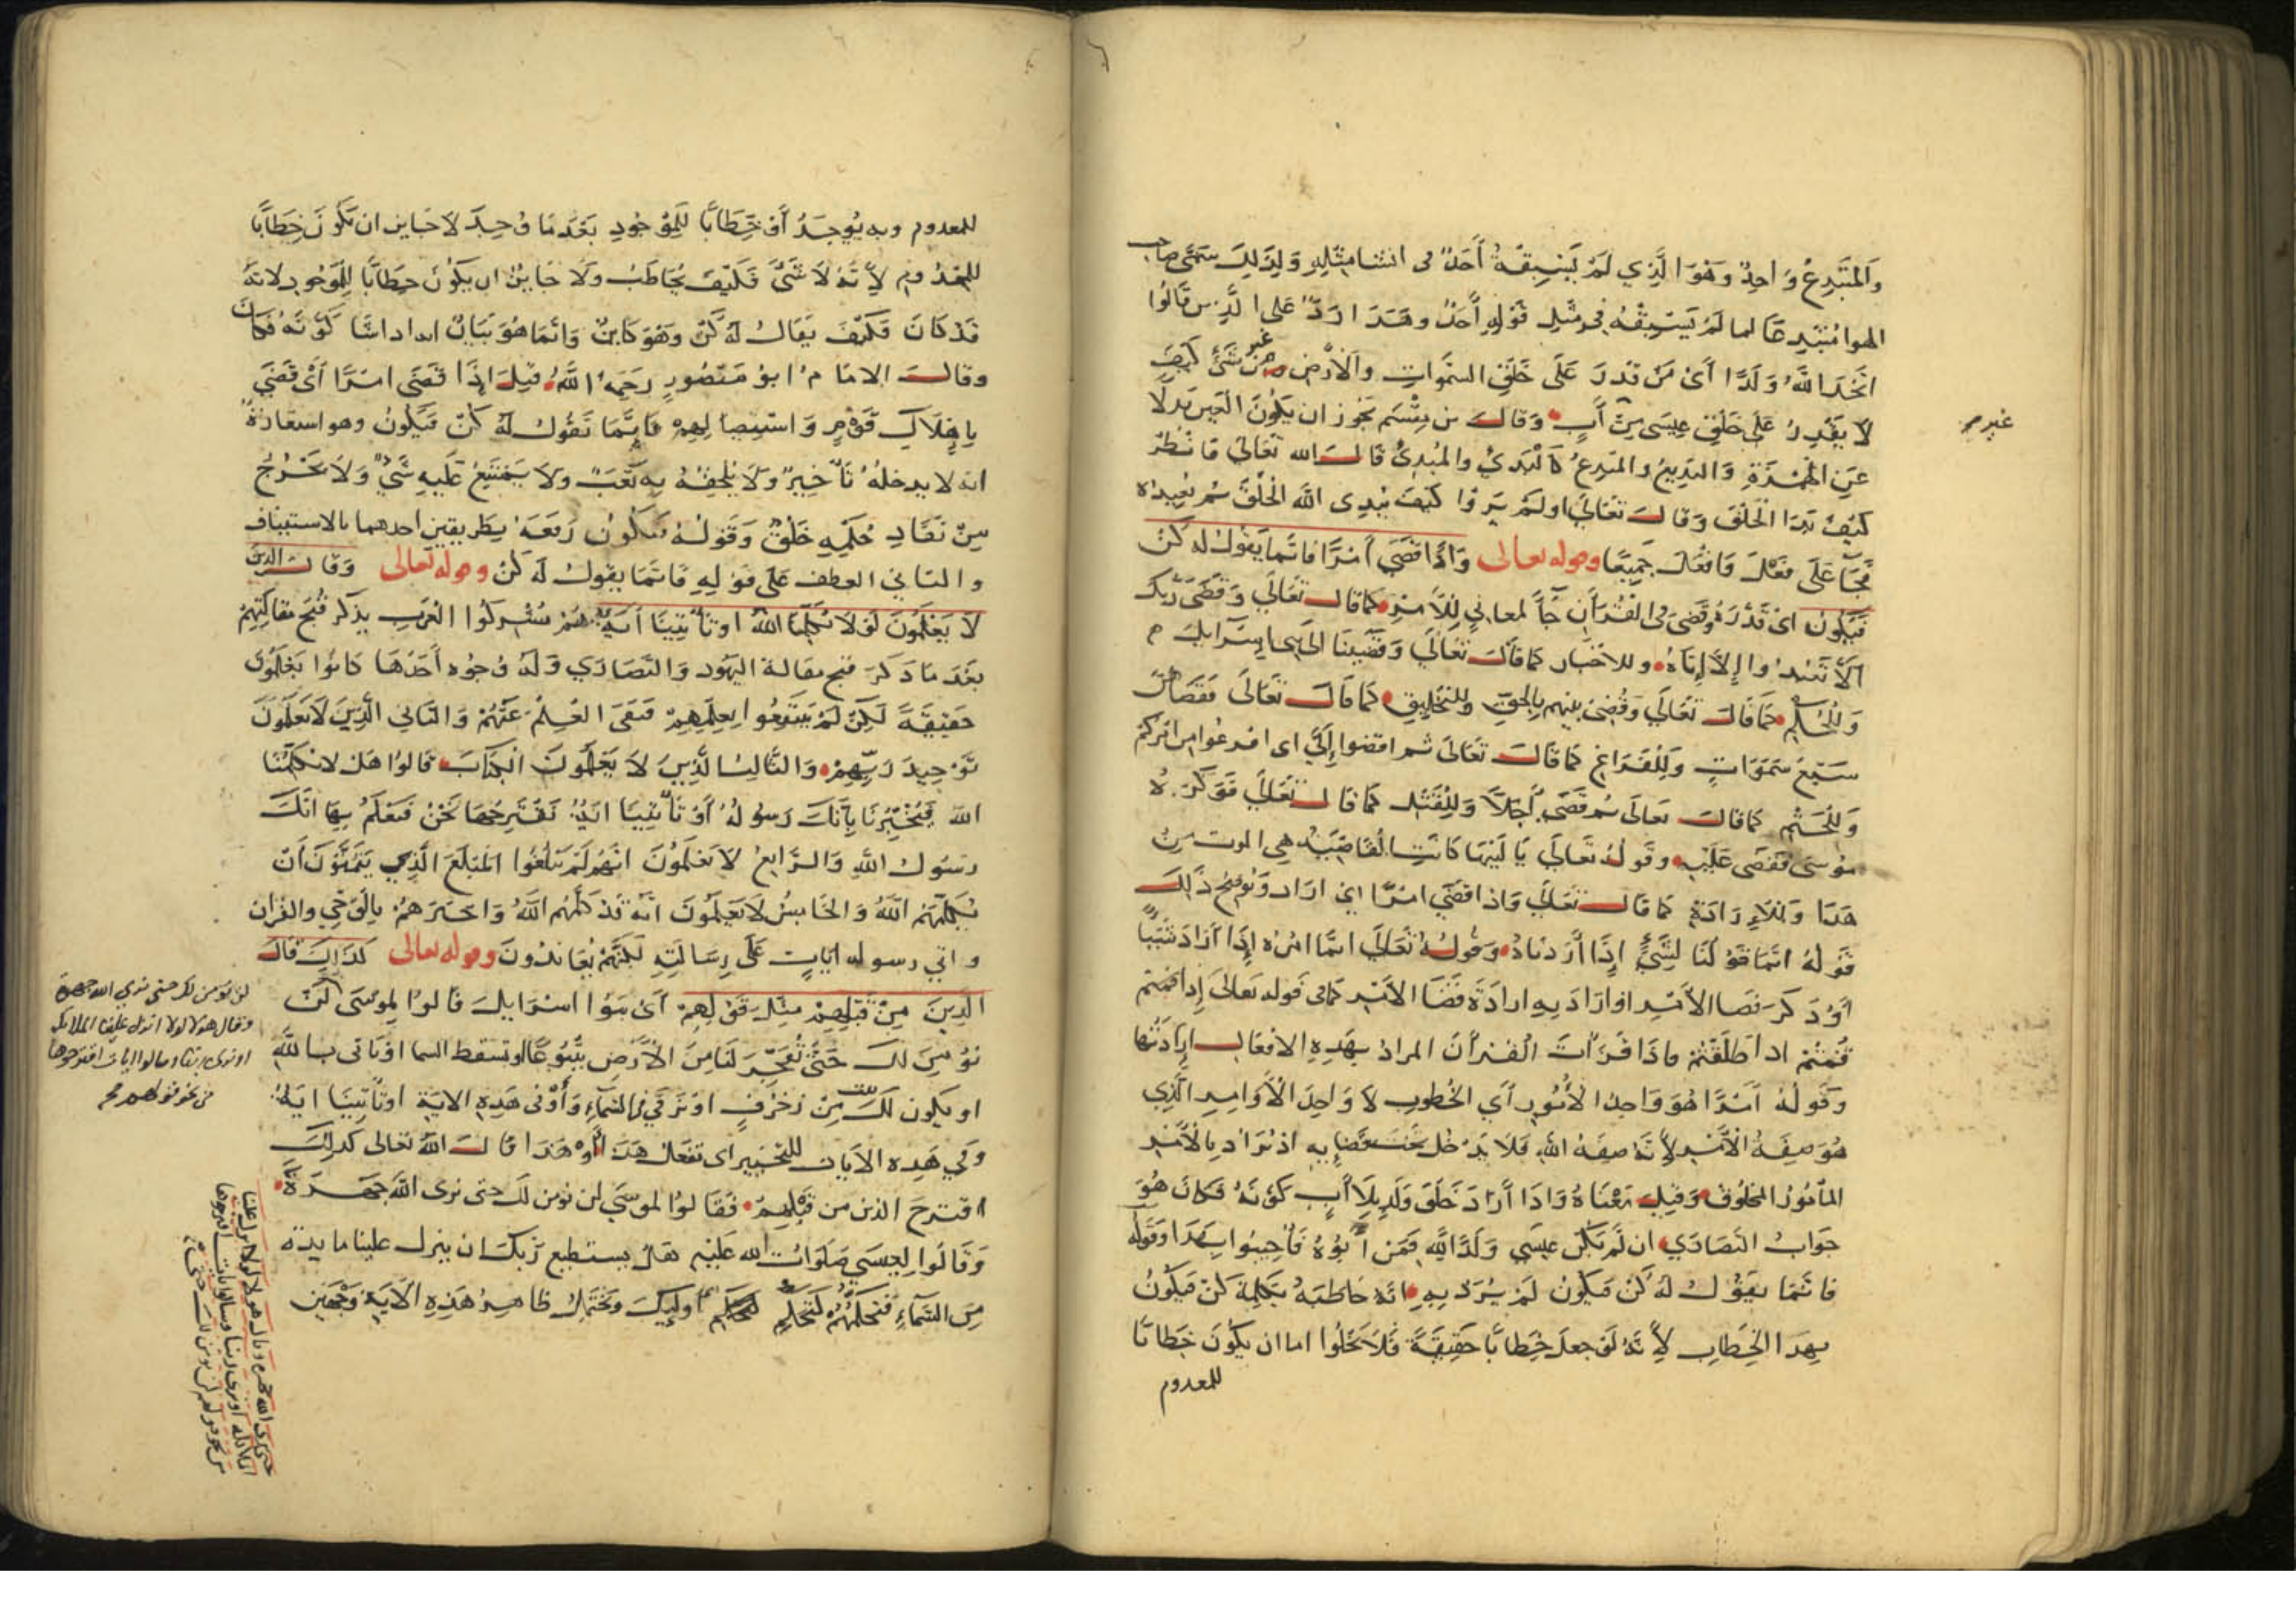 والمبتدع واحد وهو الذي لم يسبقه أحد في انشا مثله ولذلك سمي صاحب
الهوا مبتدعا لما لم يسبقه في مثل قوله أحد وهذا رد على الذين قالوا
اتخذ الله ولدا أي من قدر على خلق السموات والأرض من غير شئ كيف
لا يقدر على خلق عيسى من أب وقال
عن الهمزة والبديع والمبدع كالبدئ والمبدئ قال الله تعالى فانظر
كيف بدا الخلق وقال تعالى اولم يروا كيف يبدى الله الخلق ثم يعيده
فجآ على فعل وافعل جميعا وقوله تعالى واذا قضى أمرا فانما يقول له كن
فيكون اى قدره وقضى في القرآن جآ لمعاني للأمر كما قال تعالى وقضى ربك
ألا تعبدوا إلا إياه وللاخبار كما قال تعالى وقضينا الى بنى إسرايل
وللحكم كما قال تعالى وقضى بينهم بالحق وللتخليق كما قال تعالى فقضاهن
سبع سموات وللفراغ كما قال تعالى ثم اقضوا إلي اى افرغوا من امركم
وللحتم كما قال تعالى ثم قضى أجلا وللقتل كما قال تعالى فوكزه
موسى فقضى عليه وقوله تعالى يا ليتها كانت القاضية هي الموت من
هذا وللإرادة كما قال تعالى واذا قضى امرا اي اراد ويوضح ذلك
قوله انما قولنا لشئ إذا أردناه وقوله تعالى انما امره إذا أراد شيئا
أو ذكر قضا الأمر اواراد به ارادة قضا الامر كما في قوله تعالى إذا قمتم
قمتم اذا طلقتم فاذا قرأت القرآن المراد بهذه الافعال إرادتها
وقوله أمرا هو واحد الأمور أي الخطوب لا واحد الأوامر الذي
هو صفة الأمر لأنه صفة الله فلا يدخل تحت قضايه اذ يراد بالأمر
المأمور المخلوق وقيل معناه واذا أراد خلق ولد بلا أب كونه فكان هو
جواب النصارى ان لم يكن عيسى ولدا لله فمن أبوه فأجيبوا بهذا وقوله
فانما يقول له كن فيكون لم يرد به انه خاطبه بكلمة كن فيكون
بهذا الخطاب لأنه لو جعل خطابا حقيقة فلا يخلوا اما ان يكون خطابا
للمعدوم
غير
للمعدوم وبه يوجد أو خطابا للموجود بعد ما وجد لا جايز ان يكون خطابا
للمعدوم لأنه لا شئ فكيف يخاطب ولا جايز ان يكون خطابا للموجود لانه
قد كان فكيف يقال له كن وهو كاين وانما هو بيان انه اذا شا كونه فكان
وقال الامام ابو منصور رحمه الله قيل اذا قضى امرا أى قضى
بإهلاك قوم واستيصالهم فانما تقول له كن فيكون وهو استعارة
انه لا يدخله تأخير ولا يلحقه به تعب ولا يمتنع عليه شئ ولا يخرج
من نفاد حكمه خلق وقوله فيكون رفعه بطريقين احدهما بالاستيناف
والثاني العطف على قوله فانما يقول له كن وقوله تعالى وقال الذين
لا يعلمون لولا يكلمنا الله اوتأتينا آية هم مشركوا العرب يذكر قبح مقالتهم
بعد ما ذكر قبح مقالة اليهود والنصارى وله وجوه أحدها كانوا يعلمون
حقيقة لكن لم ينتفعوا بعلمهم فنفى العلم عنهم والثاني الذين لا يعلمون
توحيد ربهم والثالث الذين لا يعلمون الكتاب قالوا هلا يكلمنا
الله فيخبرنا بأنك رسوله أو تأتينا اية نقترحها نحن فنعلم بها انك
رسول الله والرابع لا يعلمون انهم لم يبلغوا المبلغ الذي يتمنون أن
يكلمهم الله والخامس لا يعلمون انه قد كلمهم الله واخبرهم بالوحي والقرآن
واتي رسوله ايات على رسالته لكنهم يعاندون وقوله تعالى كذلك قال
الذين من قبلهم مثل قولهم أى بنوا اسرايل قالوا لموسى لن
نؤمن لك حتى تفجر لنا من الأرض ينبوعا او تسقط السما او تاتى بالله
او يكون لك بيت من زخرف او ترقى في السماء وأو في هذه الاية اوتأتينا اية
وفي هذه الايات للتخيير اى تفعل هذا أو هذا قال الله تعالى كذلك
اقترح الذين من قبلهم فقالوا لموسى لن نومن لك حتى نرى الله جهرة
وقالوا لعيسى صلوات الله عليه هل يستطيع ربك ان ينزل علينا مايدة
من السماء فتحكمهم كتحكم أوليك ويحتمل ظاهر هذه الآية وجهين
لن نومن لك حتى نرى الله جهرة
وقال هولا لولا انزل علينا الملايكة
او نرى ربنا وسالوا ايات اقترحوها
من نحو قولهم
حتى نرى الله جهرة وقال هولا لولا انزل علينا
الملايكة او نرى ربنا وسالوا ايات اقترحوها
من نحو قولهم لن نومن لك حتى